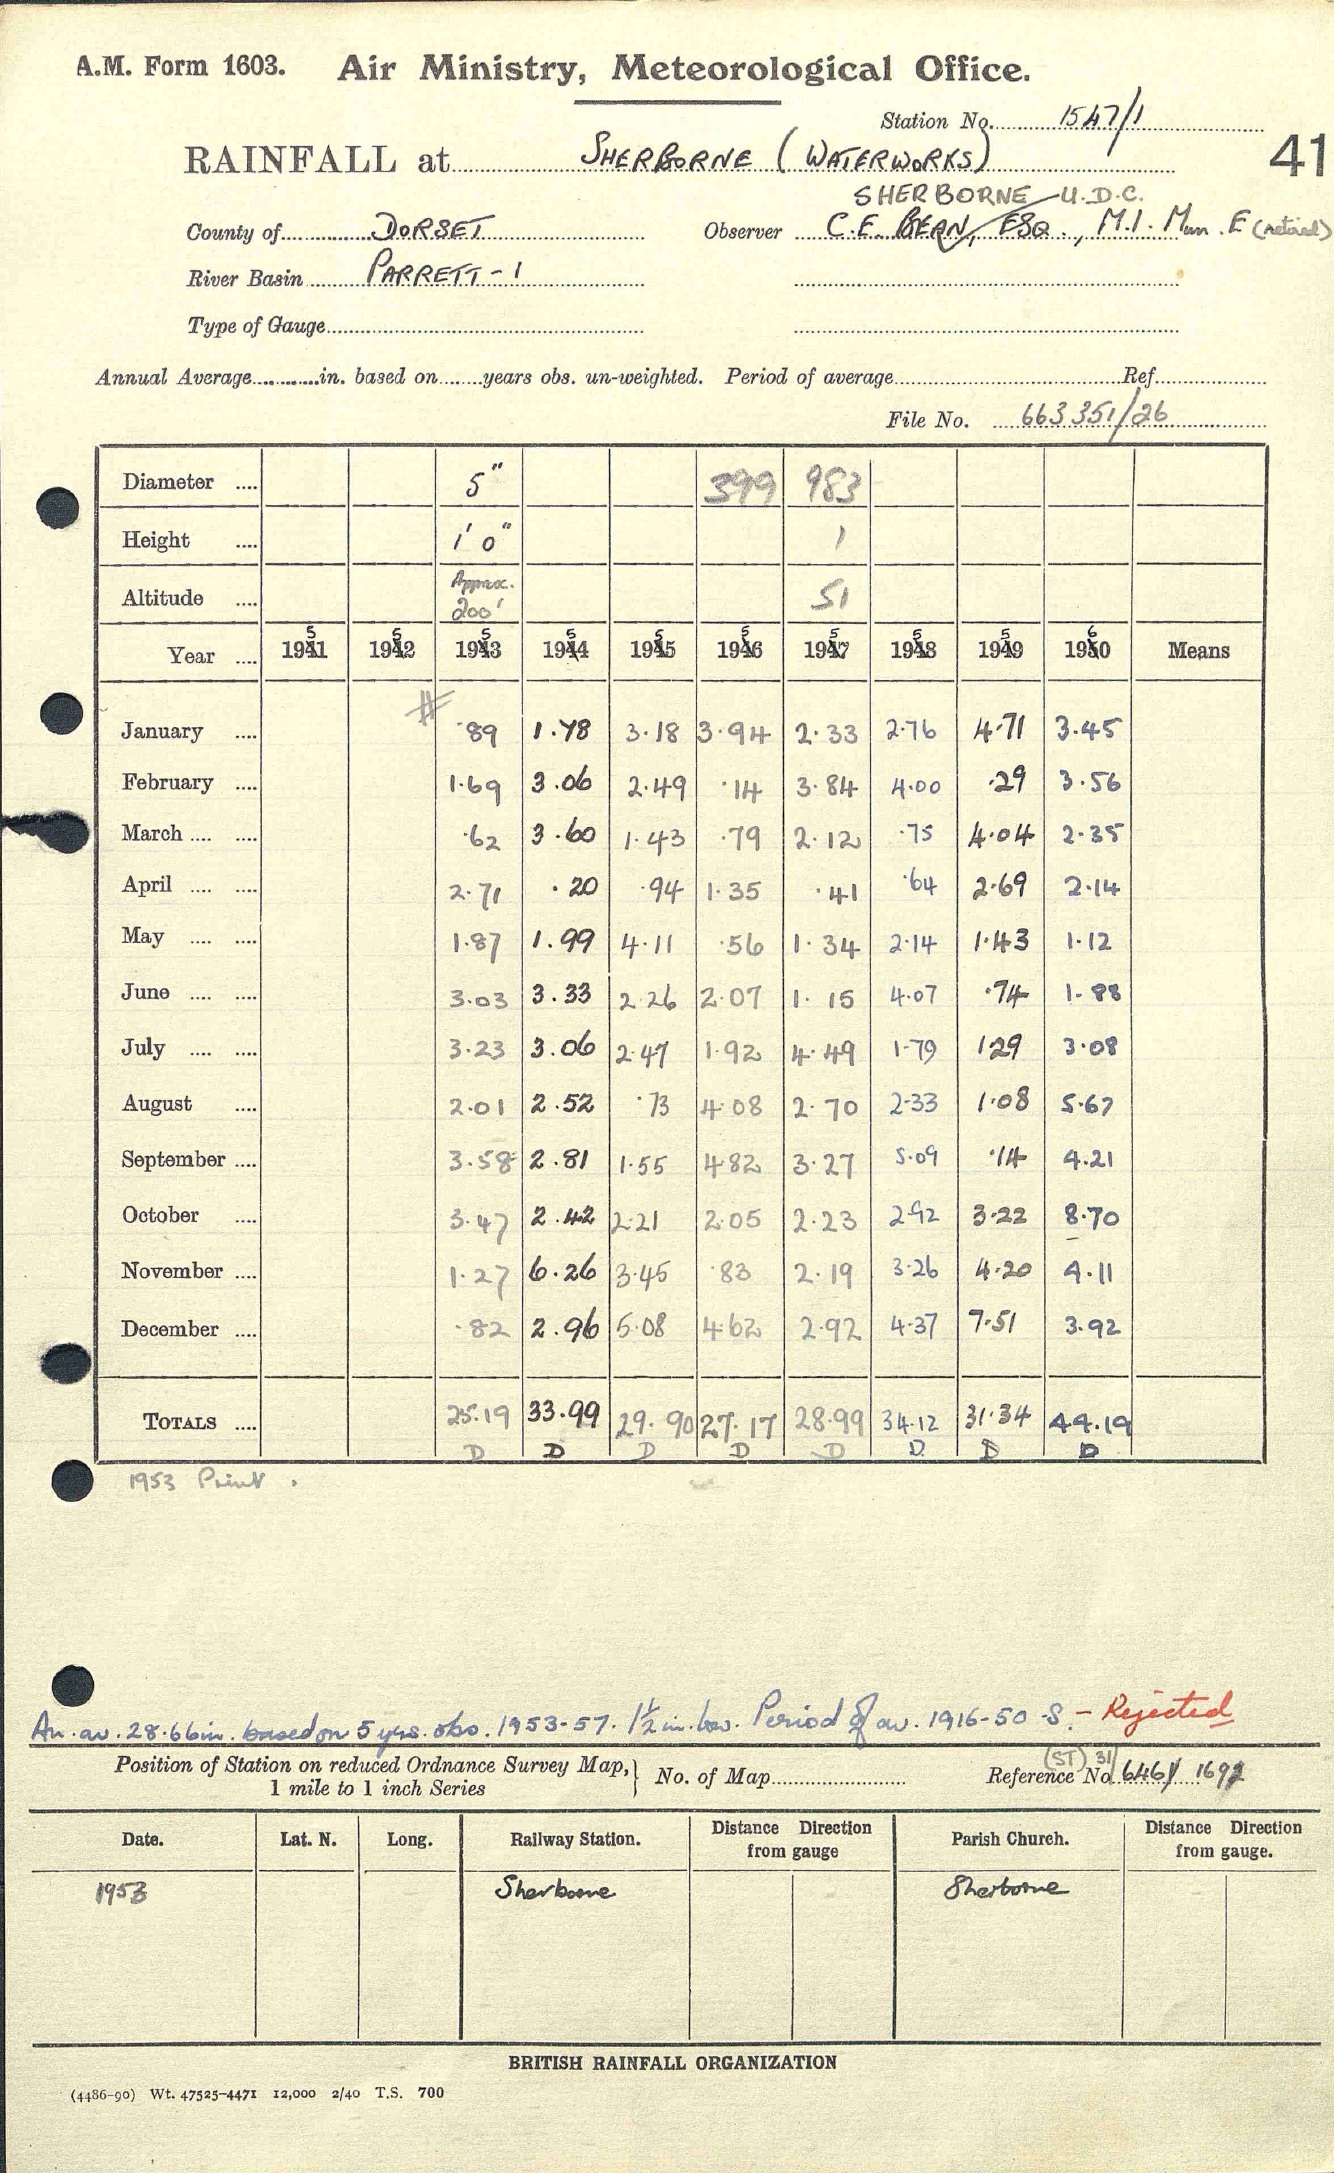 A.M. Form 1603. Air Ministry, Meteorological Office.
Station No. 1547/1
RAINFALL at SHERBORNE (WATERWORKS) 41
SHERBORNE U.D.C.
County of DORSET Observer C.E. BEAN, ESQ., M.I. Mun. E (retired)
River Basin PARRETT - 1
Type of Gauge
Annual Average in. based on years obs. un-weighted. Period of average Ref
File No. 663351/26
Diameter .... 5" 399 983
Height .... 1' 0" 1
Altitude .... Approx. 200' 51
5 5 5 5 5 5 5 5 5 6
Year .... 1941 1942 1943 1944 1945 1946 1947 1948 1949 1950 Means
January .... ·89 1.78 3·18 3·94 2·33 2·76 4·71 3·45
February .... 1·69 3.06 2·49 ·14 3·84 4·00 ·29 3·56
March .... .... ·62 3.60 1·43 ·79 2·12 ·75 4·04 2·35
April .... .... 2·71 .20 ·94 1·35 ·41 ·64 2·69 2·14
May .... .... 1·87 1.99 4·11 ·56 1·34 2·14 1·43 1·12
June .... .... 3·03 3.33 2·26 2·07 1·15 4·07 ·74 1·88
July .... .... 3·23 3.06 2·47 1·92 4·49 1·79 1·29 3·08
August .... 2·01 2.52 ·73 4·08 2·70 2·33 1·08 5·67
September .... 3·58 2.81 1·55 4·82 3·27 5·09 ·14 4·21
October .... 3·47 2.42 2·21 2·05 2·23 2·92 3·22 8·70
November .... 1·27 6.26 3·45 ·83 2·19 3·26 4·20 4·11
December .... ·82 2.96 5·08 4·62 2·92 4·37 7·51 3·92
TOTALS .... 25·19 33.99 29·90 27·17 28·99 34·12 31·34 44·19
D D D D D D D D
1953 Print.
An. av. 28.66in. based on 5 yrs. obs. 1953-57. 1½ in. low. Period of av. 1916-50 S. - Rejected
Position of Station on reduced Ordnance Survey Map, 1 mile to 1 inch Series No. of Map Reference No. (ST) 31 646/ 1692
Date. Lat. N. Long. Railway Station. Distance Direction from gauge Parish Church. Distance Direction from gauge.
1953 Sherborne Sherborne
BRITISH RAINFALL ORGANIZATION
(4486-90) Wt. 47525-4471 12,000 2/40 T.S. 700